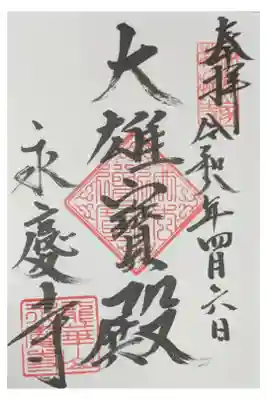 奉拝
令和八年四月六日
大雄寶殿
永慶寺